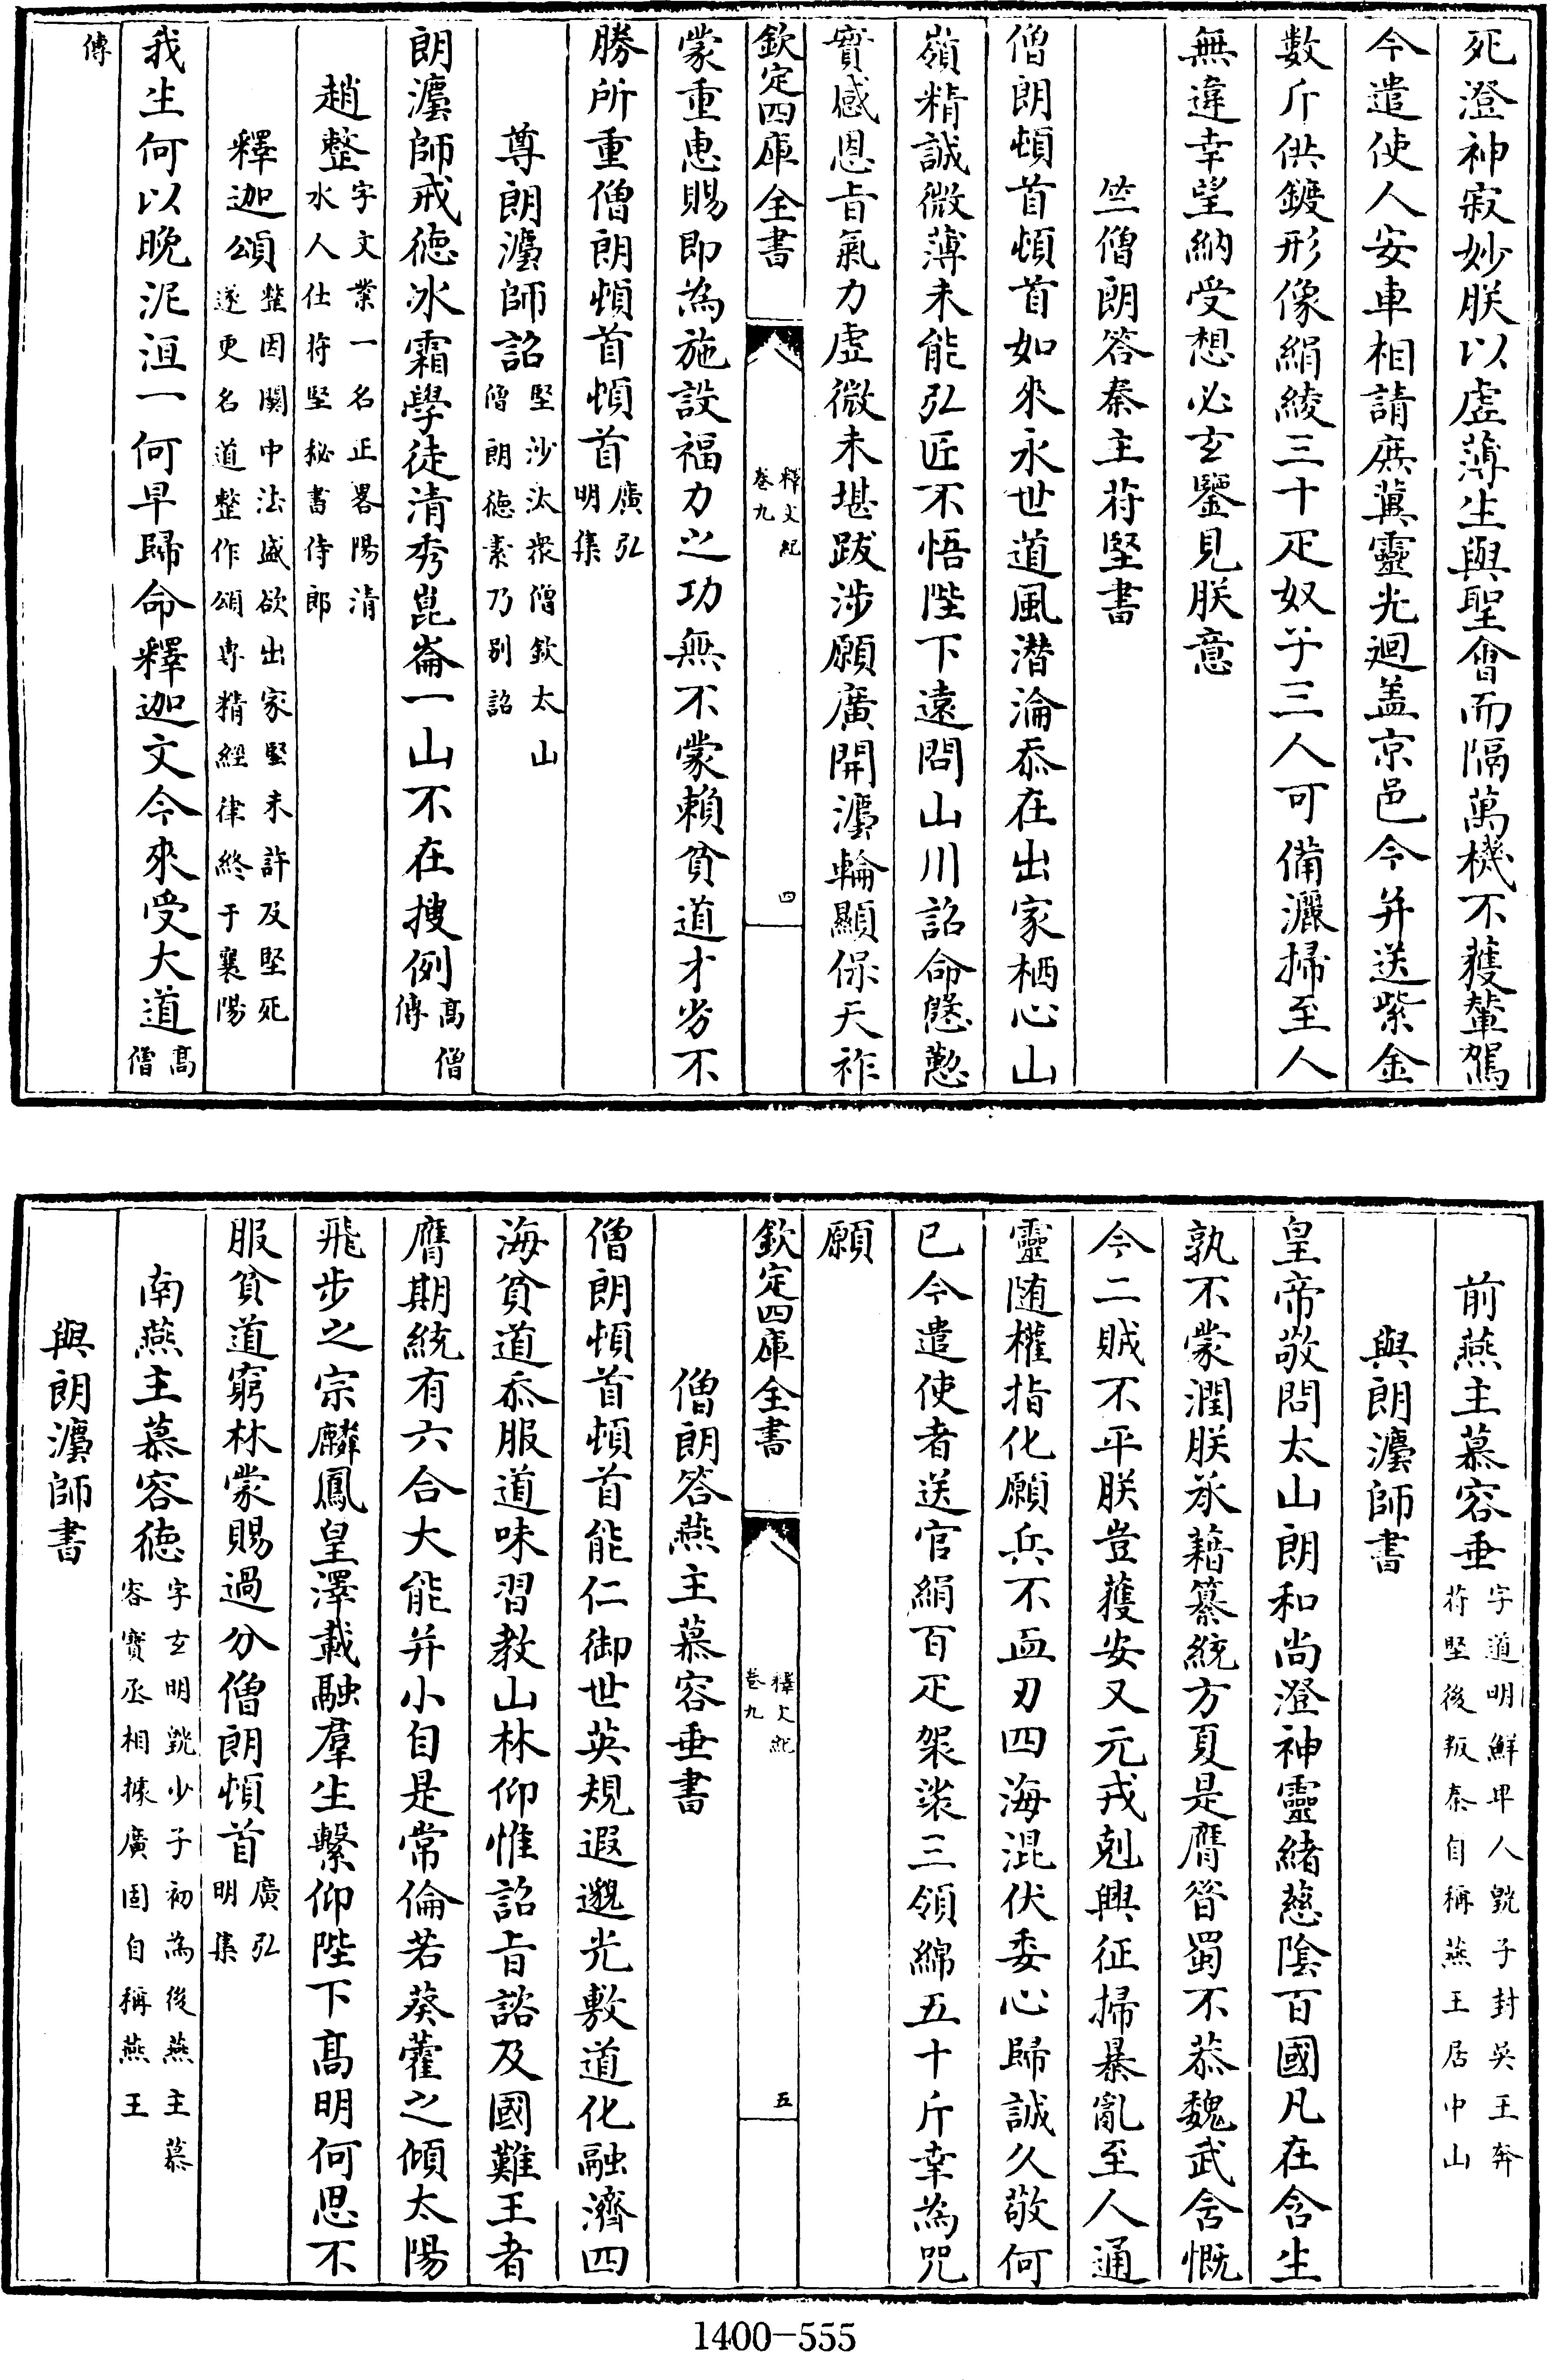 死澄神寂妙朕以虚薄生與聖會而隔萬機不獲輦駕
今遣使人安車相請庶冀靈光廻盖京邑今并送紫金
數斤供鍍形像絹綾三十疋奴子三人可備灑掃至人
無違幸望納受想必玄鑒見朕意
竺僧朗答秦主苻堅書
僧朗頓首頓首如來永世道風潜淪忝在出家栖心山
嶺精誠微薄未能弘匠不悟陛下遠問山川詔命慇懃
實感恩旨氣力虚微未堪跋涉願廣開灋輪顯保天祚
欽定四庫全書
釋文紀
卷九
四
蒙重惠賜即為施設福力之功無不蒙頼貧道才劣不
勝所重僧朗頓首頓首廣弘
明集
尊朗灋師詔堅沙汰衆僧欽太山
僧朗徳素乃别詔
朗灋師戒徳冰霜學徒清秀崑崙一山不在搜例高僧
傳
趙整字文業一名正畧陽清
水人仕苻堅秘書侍郎
釋迦頌整因關中法盛欲出家堅未許及堅死
遂更名道整作頌専精經律終于襄陽
我生何以晚泥洹一何早歸命釋迦文今來受大道高
僧
傳
前燕主慕容垂字道明鮮卑人皝子封吳王奔
苻堅後叛秦自稱燕王居中山
與朗灋師書
皇帝敬問太山朗和尚澄神靈緒慈隂百國凡在含生
孰不蒙潤朕承藉纂統方夏是膺昔蜀不恭魏武含慨
今二賊不平朕豈獲安又元戎剋興征掃暴亂至人通
靈随權指化願兵不血刃四海混伏委心歸誠久敬何
已今遣使者送官絹百疋袈裟三領綿五十斤幸為呪
願
欽定四庫全書
釋文紀
卷九
五
僧朗答燕主慕容垂書
僧朗頓首頓首能仁御世英規遐邈光敷道化融濟四
海貧道忝服道味習教山林仰惟詔旨諮及國難王者
膺期統有六合大能并小自是常倫若葵藿之傾太陽
飛步之宗麟鳳皇澤載融羣生繫仰陛下高明何思不
服貧道窮林蒙賜過分僧朗頓首廣弘
明集
南燕主慕容徳字玄明皝少子初為後燕主慕
容寳丞相據廣固自稱燕王
與朗灋師書
1400-555